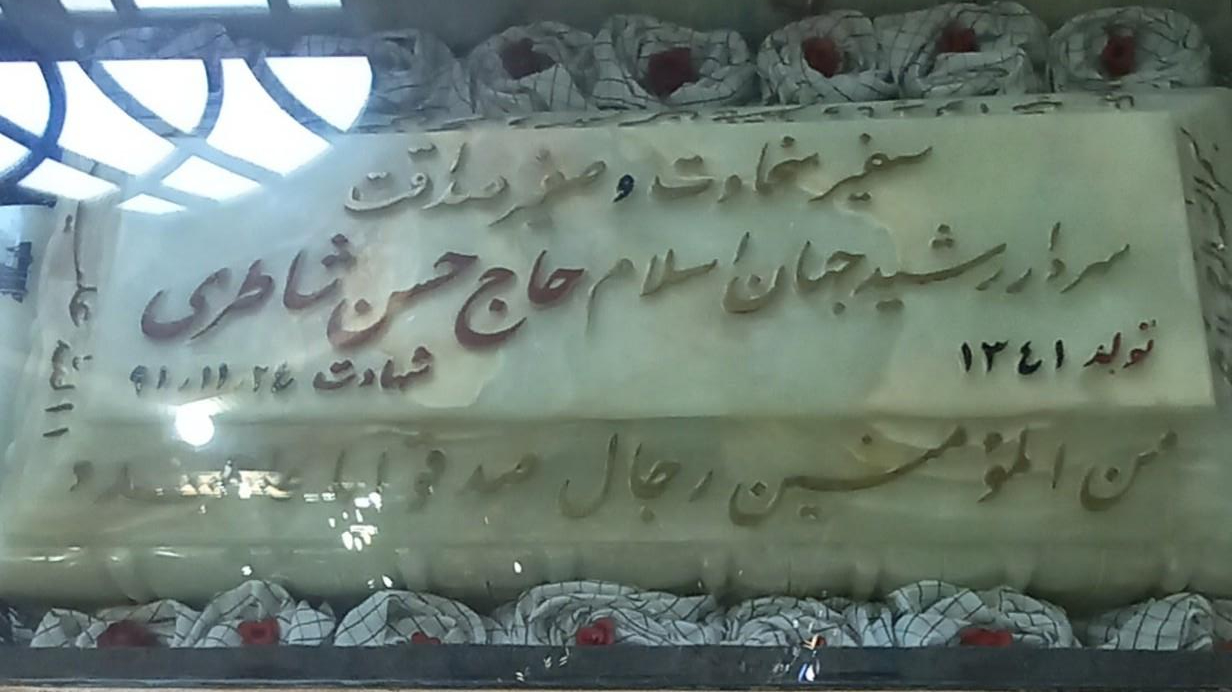 سفیر سخاوت و صفیر صداقت
سردار رشید جهان اسلام حاج حسن شاطری
تولد ۱۳٤۱
شهادت ۹۱،۱۱،۲٤
من المؤمنین رجال صدقوا ما